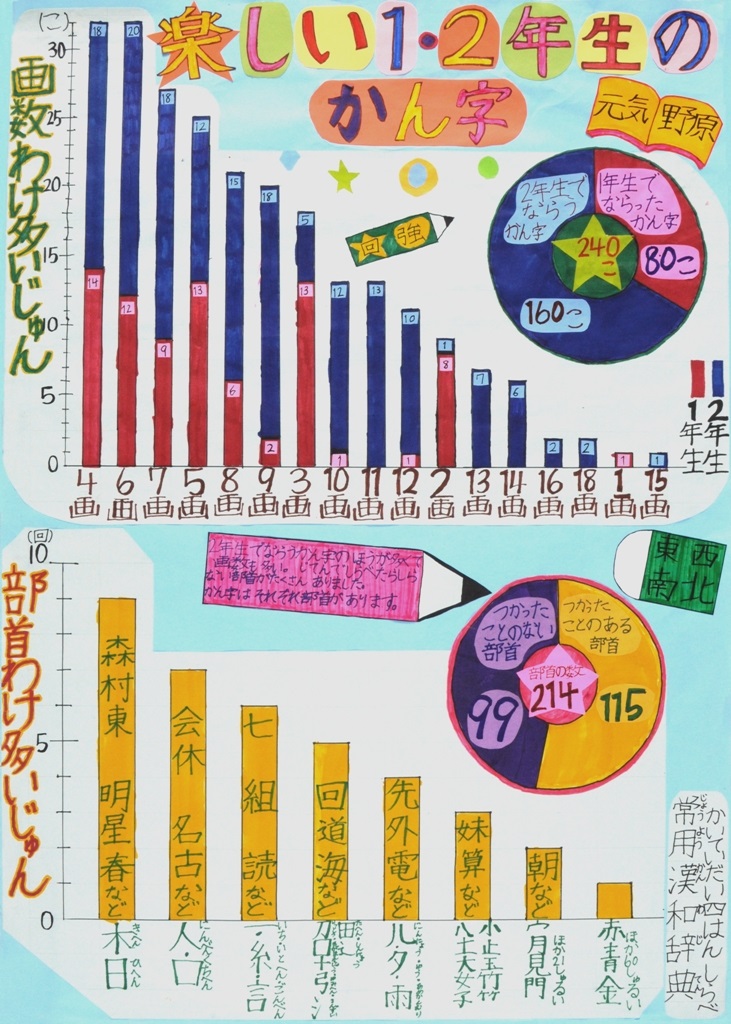 楽しい1・2年生の
かん字
元気 野原
(こ)
画数わけ多いじゅん
30
25
20
15
10
5
0
18
20
18
12
15
18
5
12
13
10
1
7
6
2
2
1
14
12
9
13
6
2
13
1
1
8
1
4画
6画
7画
5画
8画
9画
3画
10画
11画
12画
2画
13画
14画
16画
18画
1画
15画
回 強
2年生で
ならう
かん字
160こ
1年生で
ならった
かん字
80こ
240
こ
1年生
2年生
2年生でならうかん字のほうが多くて
画数も多い。じてんでしらべたらしら
ない部首がたくさんありました。
かん字はそれぞれ部首があります。
東西
南北
つかった
ことのない
部首
99
つかった
ことのある
部首
115
部首の数
214
(回)
部首わけ多いじゅん
10
5
0
森村東 明星春など
会休 名古など
七 組 読など
回道海など
先外電など
妹算など
朝など
木日
きへん ひへん
人・口
一・糸・言
儿・夕・雨
小止玉竹
八土大女子
月見門
赤青金
かいていだい四はん しらべ
常用漢和辞典
じょうようかんわじてん